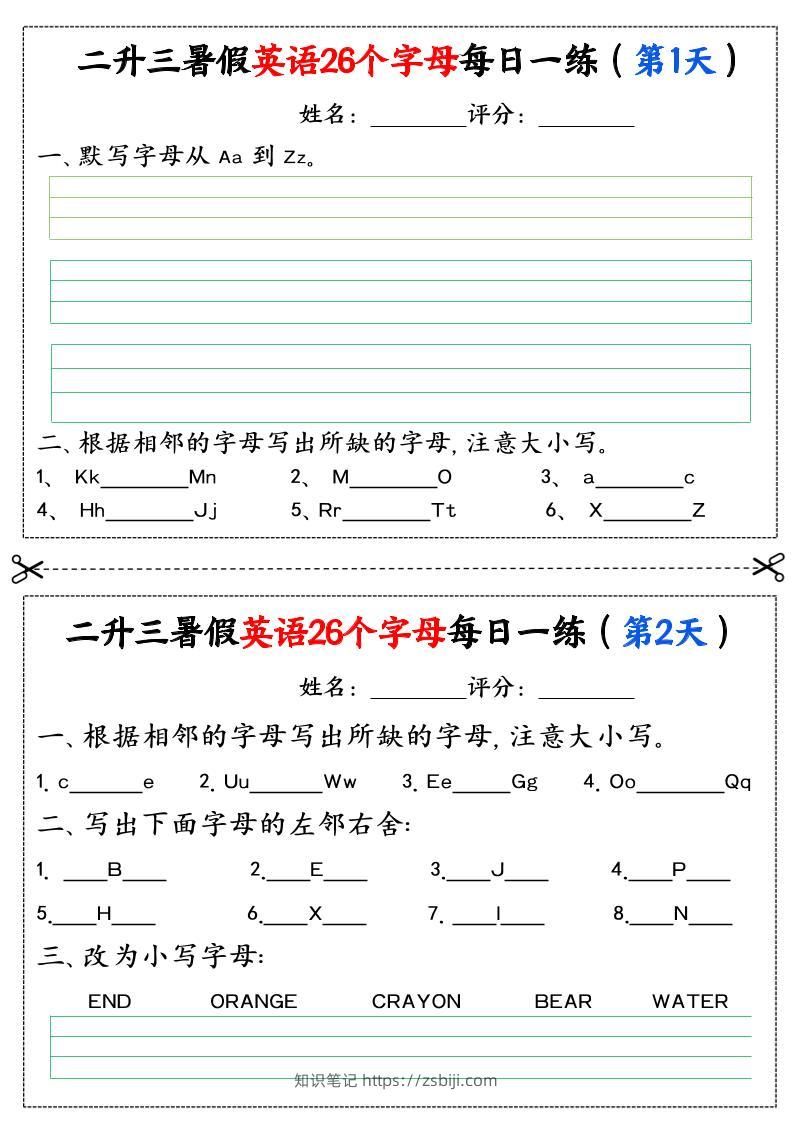 二升三暑假英语26个字母每日一练（第1天）
姓名：________评分：________
一、默写字母从 Aa 到 Zz。
二、根据相邻的字母写出所缺的字母,注意大小写。
1、 Kk________Mn 2、 M________O 3、 a________c
4、 Hh________Jj 5、Rr________Tt 6、 X________Z
二升三暑假英语26个字母每日一练（第2天）
姓名：________评分：________
一、根据相邻的字母写出所缺的字母,注意大小写。
1. c______e 2. Uu______Ww 3. Ee_____Gg 4. Oo________Qq
二、写出下面字母的左邻右舍:
1. ____B____ 2.____E____ 3.____J____ 4.____P____
5.____H____ 6.____X____ 7. ____I____ 8.____N____
三、改为小写字母:
END ORANGE CRAYON BEAR WATER
知识笔记 https://zsbiji.com